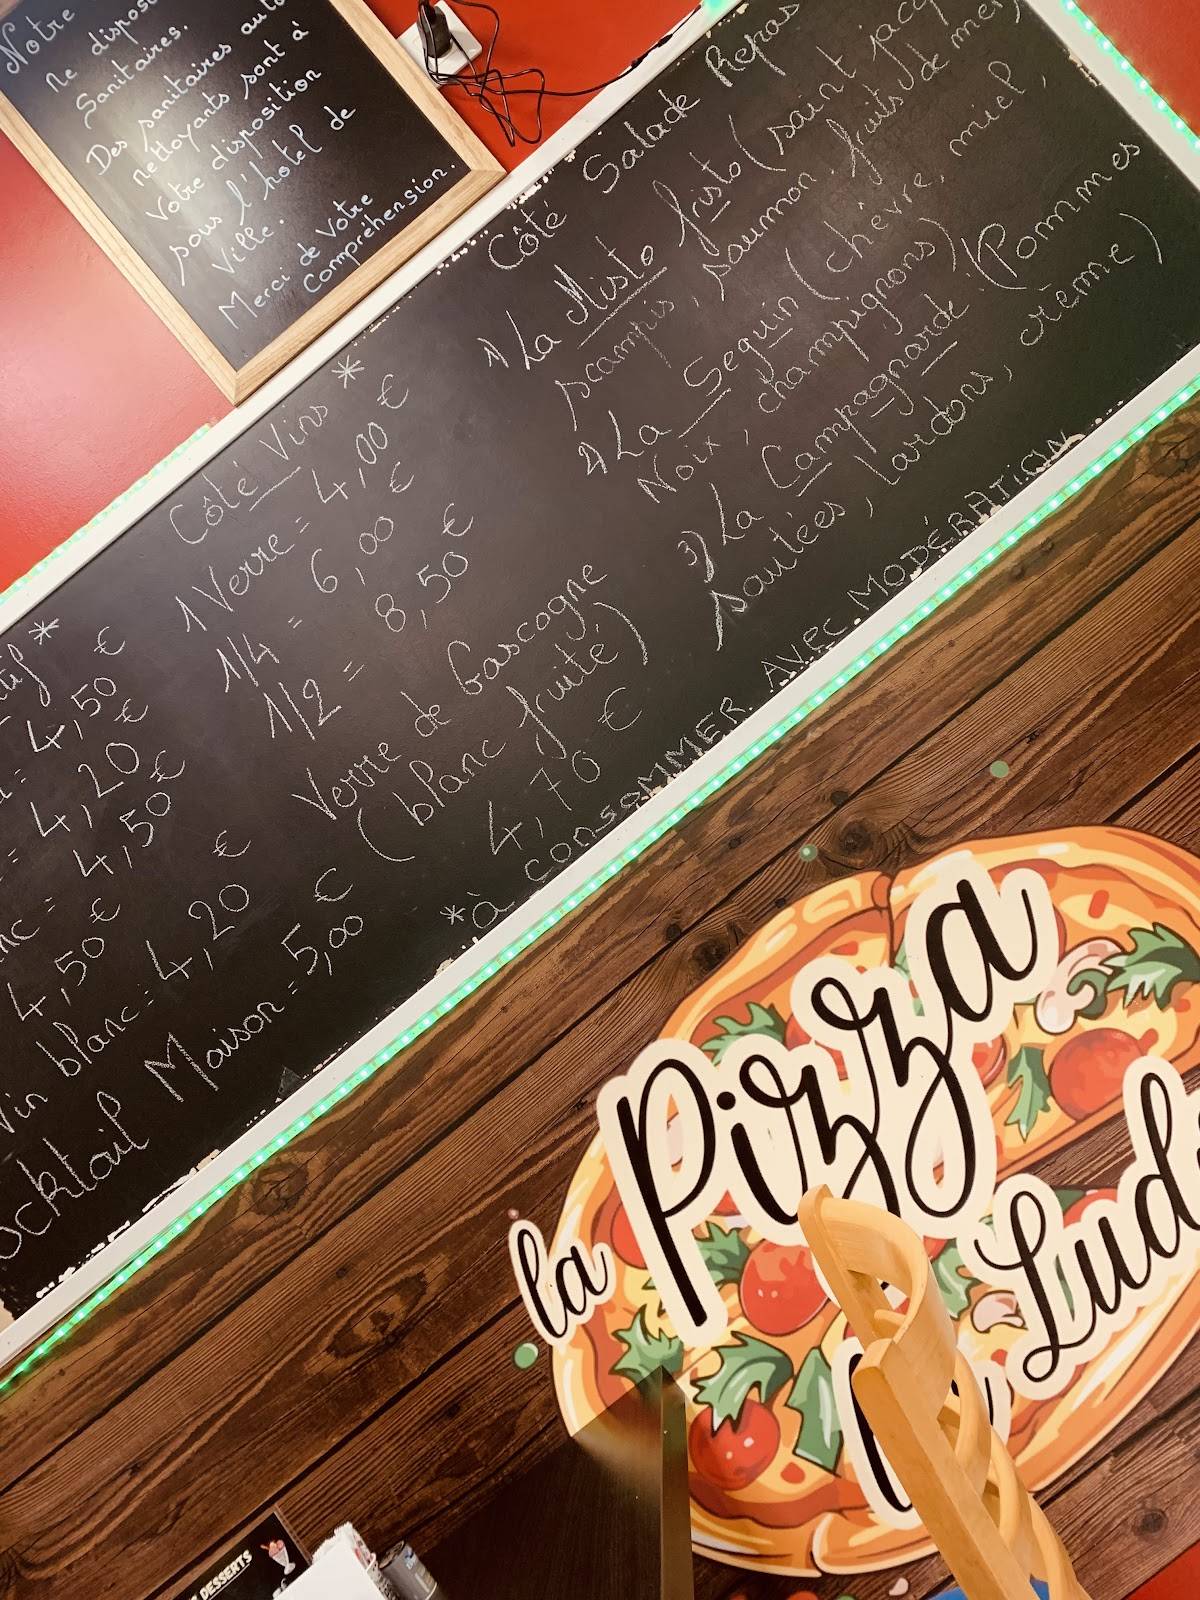 Notre
ne dispos
Sanitaires.
Des sanitaires auto
nettoyants sont à
votre disposition
sous l'hôtel de
Ville.
Merci de Votre
Compréhension.
4,50 €
= 4,20 €
= 4,50 €
4,50 €
Vin blanc = 4,20 €
ocktail Maison = 5,00 €
Côté Vins *
1 Verre = 4,00 €
1/4 = 6,00 €
1/2 = 8,50 €
Verre de Gascogne
(blanc fruité)
4,70 €
Côté Salade Repas
1) La Misto fristo (saint jacq
scampis, saumon, fruits de mer,
2) La Seguin (chèvre, miel,
Noix, champignons)
3) La Campagnarde (Pommes
sautées, lardons, crème)
*à CONSOMMER AVEC MODÉRATION
la Pizza
Lud
DESSERTS